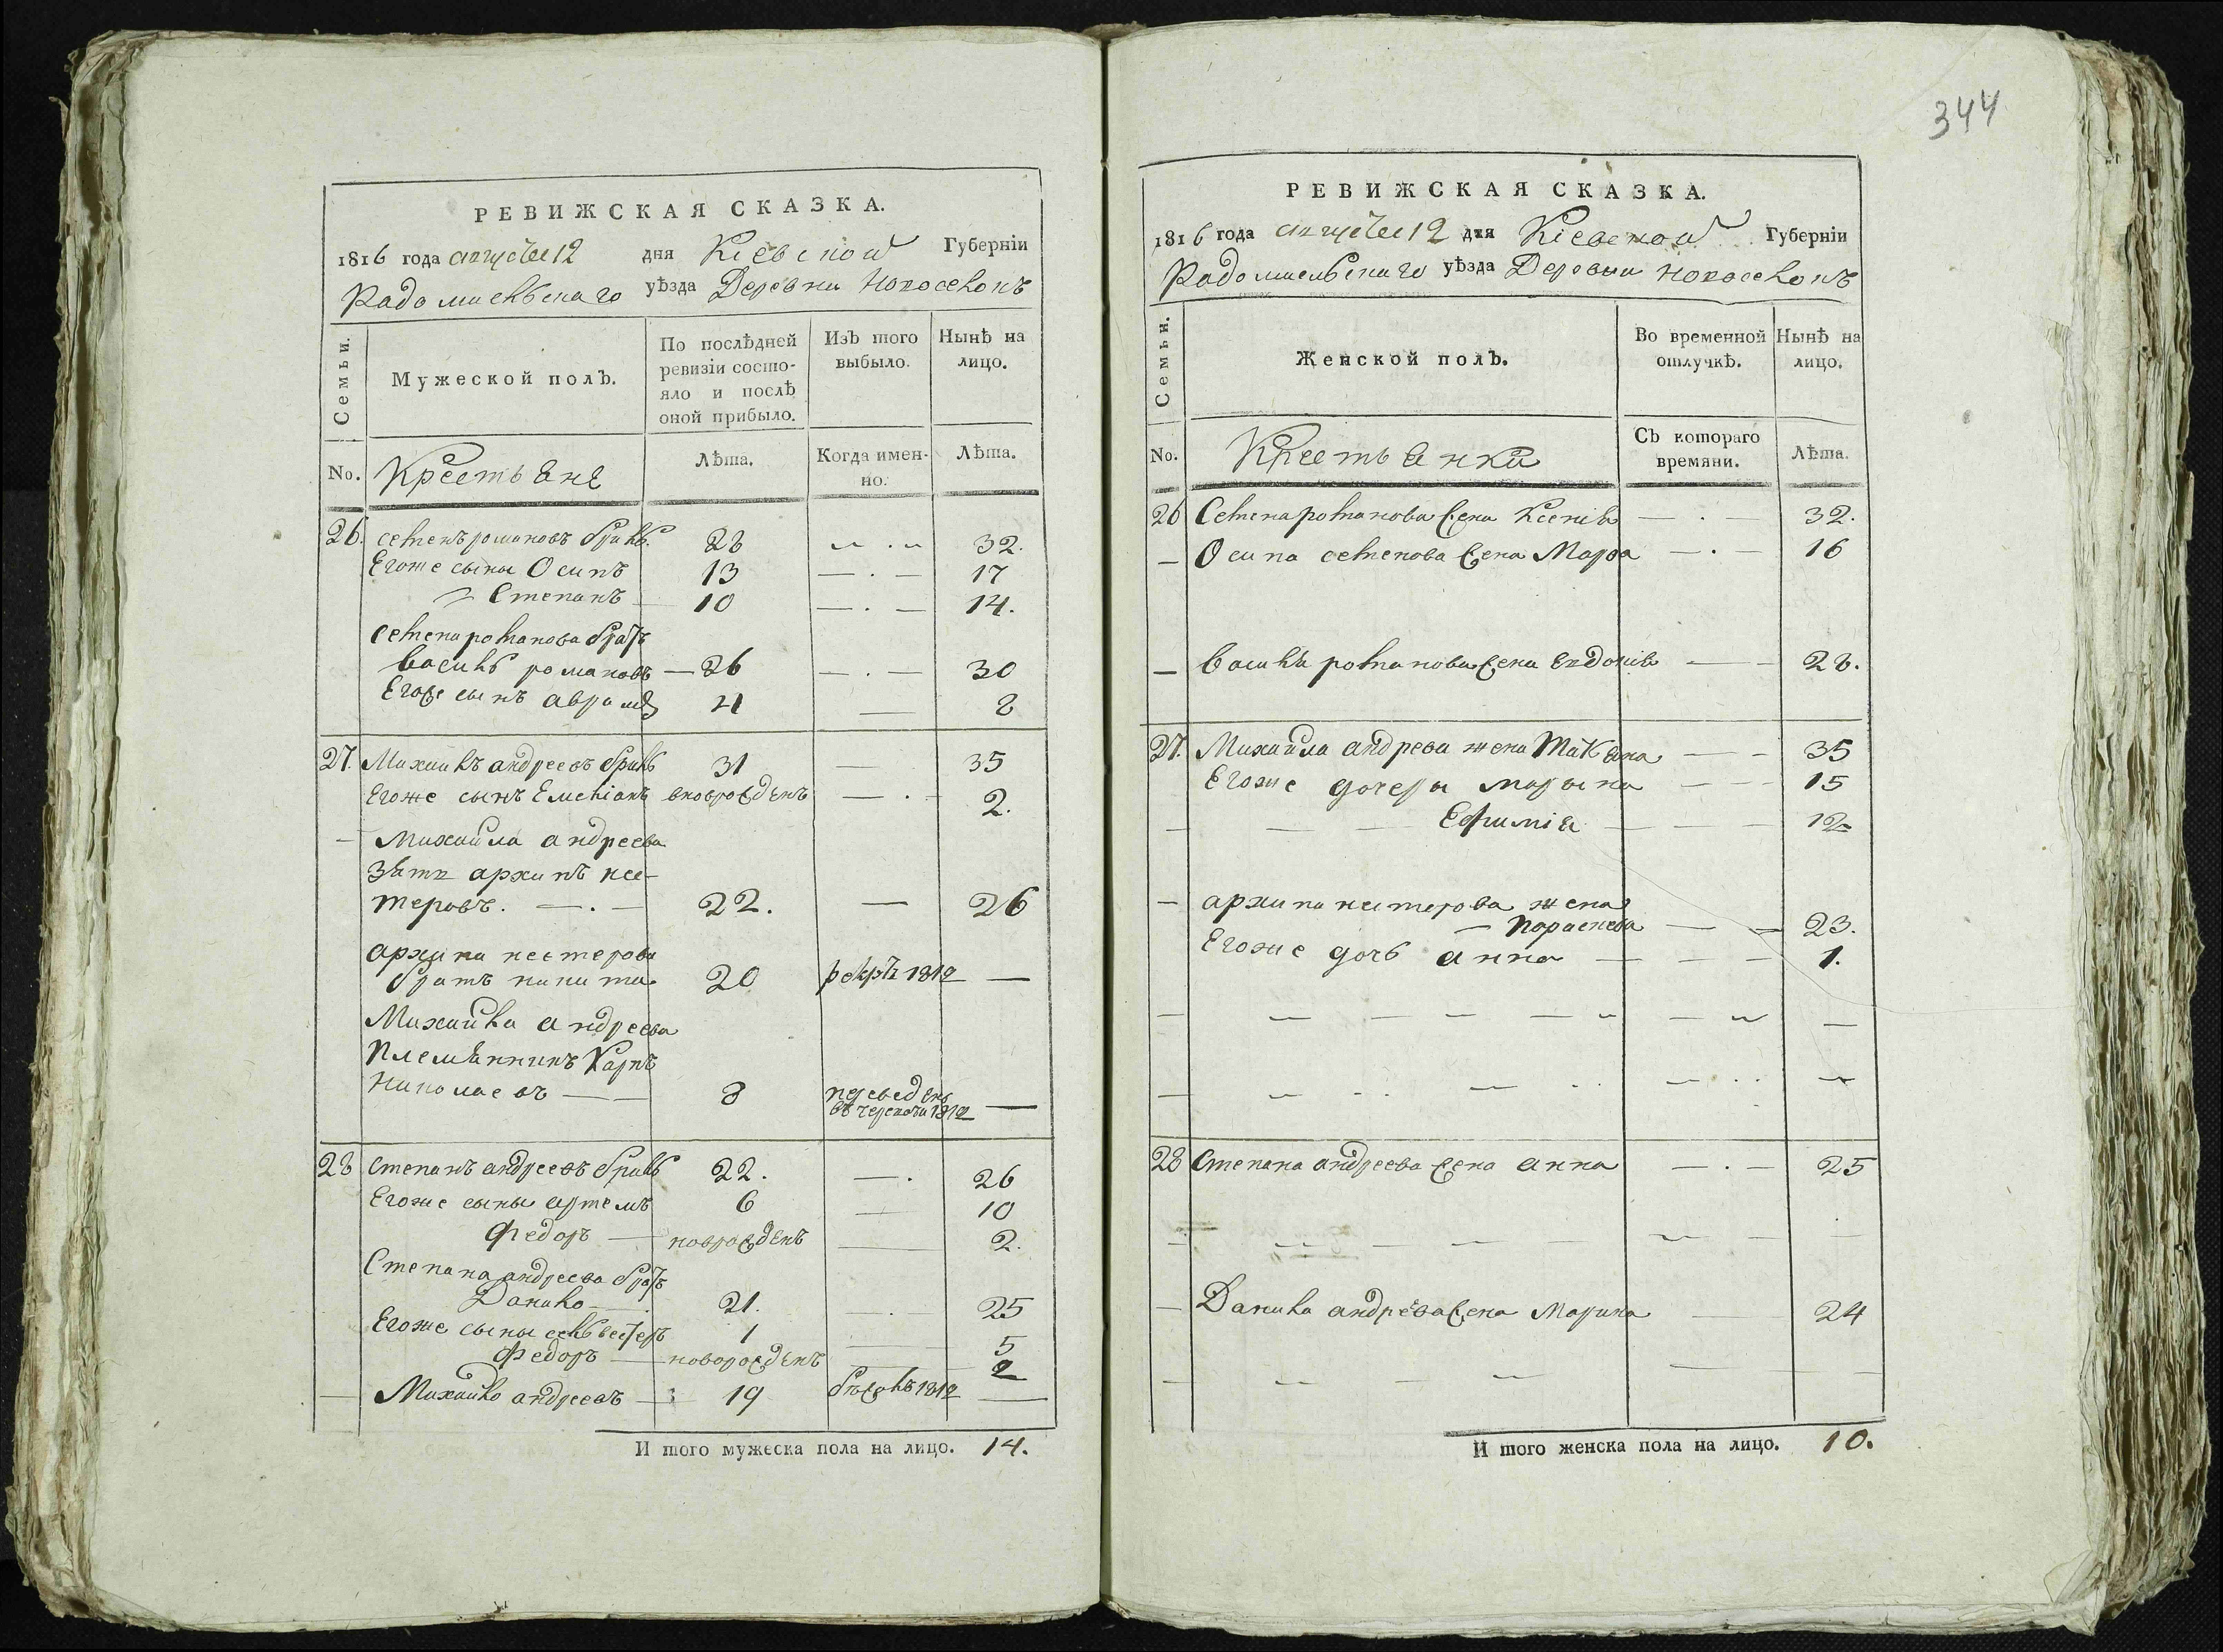 РЕВИЖСКАЯ СКАЗКА.
1816 года августа 12 дня Кіевской Губерніи
Радомысльскаго уѣзда Деревни Новоселокъ
Семьи.
Мужеской полъ.
По послѣдней ревизіи состояло и послѣ оной прибыло.
Изъ того выбыло.
Нынѣ на лицо.
No. Крестьяне
Лѣта.
Когда именно.
Лѣта.
26. Семенъ романовъ 28 32.
Егоже сыны Осипъ 13 — . — 17
Степанъ 10 — . — 14.
Семена романова братъ
Василь романовъ — 26 — . — 30
Егоже сынъ аврамъ 4 — 8
27. Михаилъ андреевъ 31 — 35
Егоже сынъ Емеліанъ вноврожденъ — . — 2.
— Михайла андреева
Зять архипъ нес-
теровъ. — . — 22. — 26
архипа нестерова
братъ никита 20 рекрутъ 1812 —
Михайла андреева
Племянникъ Карпъ
Николаевъ — 8 переведенъ 1812 —
28 Степанъ андреевъ 22. — . 26
Егоже сыны артемъ 6 — 10
Федоръ — новрожденъ — 2.
Степана андреева братъ
Данило — 21. — . — 25
Егоже сыны селвестеръ 1 — 5
Федоръ — новорожденъ — 2
— Михайло андреевъ — 19 бѣжалъ 1812 —
И того мужеска пола на лицо. 14.
344
РЕВИЖСКАЯ СКАЗКА.
1816 года августа 12 дня Кіевской Губерніи
Радомысльскаго уѣзда Деревни Новоселокъ
Семьи.
Женской полъ.
Во временной отлучкѣ.
Нынѣ на лицо.
No. Крестьянки
Съ котораго времяни.
Лѣта.
26 Семена романова жена Ксенія — . — 32.
— Осипа семенова жена Марфа — . — 16
— Василя романова жена Евдокія — 28.
27. Михайла андреева жена Татьяна — 35
Егоже дочеры марына — 15
Ефимія — 12
— архипа нестерова жена
— Параскева — 23.
Егоже дочь анна — 1.
28 Степана андреева жена анна — . — 25
— Данила андреева жена Марина — 24
И того женска пола на лицо. 10.